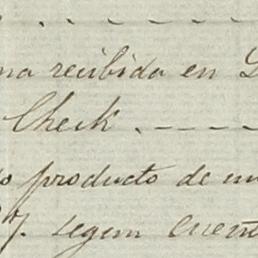 na recibida en
Check. - - - -
o producto de
7. segun Cuent